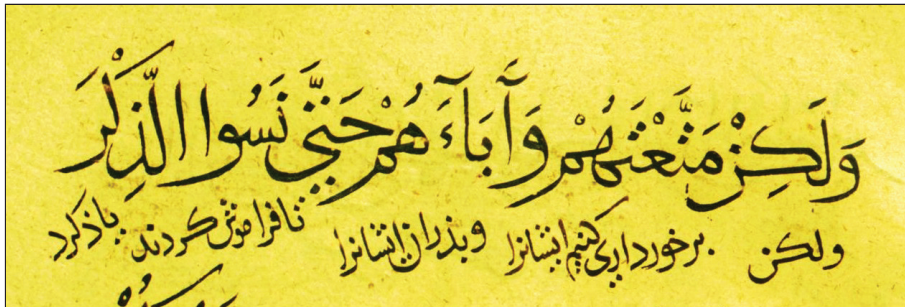 وَلَكِنْ مَتَّعْتَهُمْ وَآبَآءَهُمْ حَتَّىٰ نَسُوا الذِّكْرَ
ولكن برخورداری کنیم ایشانرا وبذران ایشانرا تا فراموش کردند یاذکرد